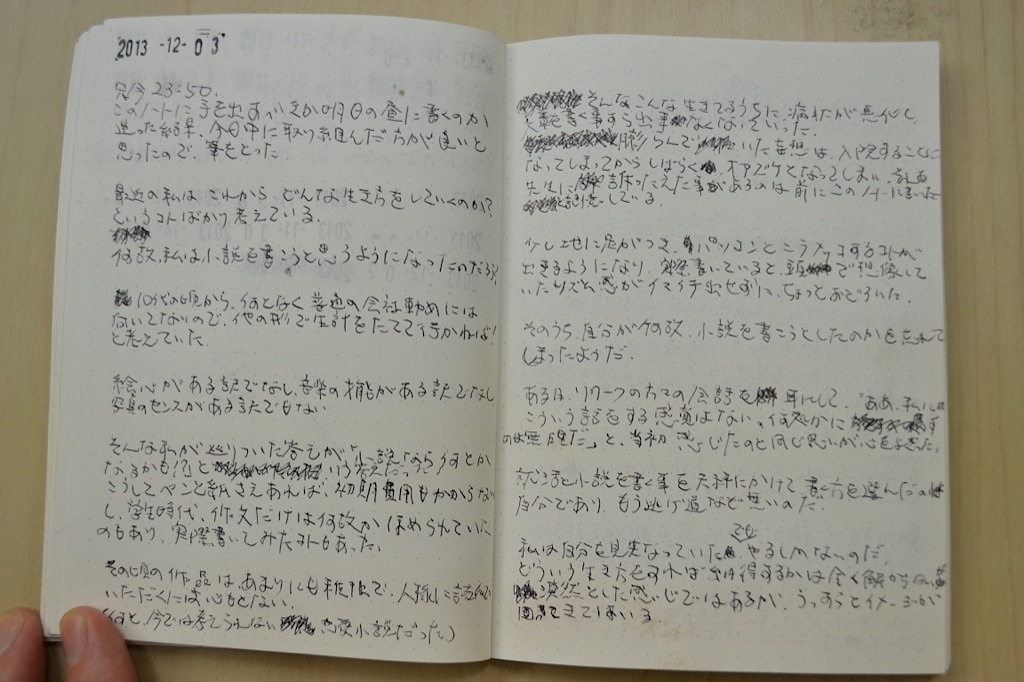 2013 -12- 03
只今23:50.
このノートに手を出すべきか明日の昼に書くのか
迷った結果、今日中に取り組んだ方が良いと
思ったので、筆をとった.
最近の私は、これから、どんな生き方をしていくのか?
というコトばかり考えている.
何故、私は小説を書こうと思うようになったのだろう?
10代の頃から、何となく普通の会社勤めには
向いてないので、他の形で生計をたてて行かねば!
と考えていた.
絵心がある訳でなし、音楽の才能がある訳でなし
写真のセンスがある訳でもない
そんな私が辿りついた答えが「小説なら何とか
なるかも!?」という考えだった.
こうしてペンと紙さえあれば、初期費用もかからない
し、学生時代、作文だけは何故かほめられていた
のもあり、実際書いてみたコトもあった.
その頃の作品は、あまりにも稚拙で、人様に読んで
いただくには心もとない.
(何と、今では考えられない 恋愛小説だった)
そんなこんな生きてるうちに、病状が悪化し
文章を書く事すら出来なくなっていった.
膨らんでいた妄想は、入院することに
なってしまってからしばらくオアズケとなってしまい、
先生に言ったことがあるのは前にこのノートに書いたと
記憶している.
少し地に足がつき、パソコンとこうするコトが
出きるようになり、実際書いていると、頭で想像して
いたリズム感がイマイチ出せずに、ちょっとおどろいた.
そのうち、自分が何故、小説を書こうとしたのかを忘れて
しまったようだ.
ある日、リワークの方々の会話を耳にして、「ああ、私には
こういう話をする感覚はない.何処かに
のは無理だ」と、当初感じたのと同じ思いが心をよぎった.
就活と小説を書く事を天秤にかけて 書く方を選んだのは
自分であり、もう逃げ道など無いのだ.
私は自分を見失なっていた でも やるしかないのだ.
どういう生き方をすれば納得するかは全く解からないが
漠然とした感じではあるが、うっすらとイメージが
出きてきてはいる